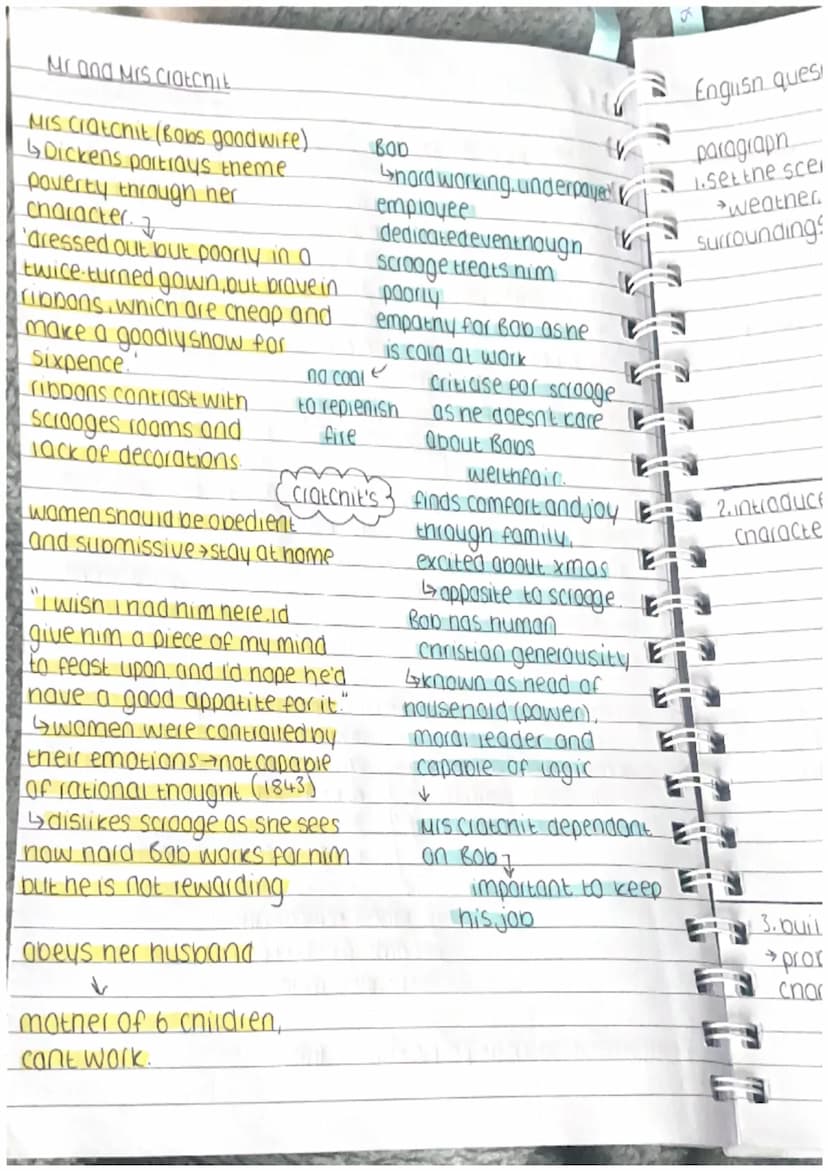 Mr and Mrs Cratchit
Mrs Cratchit (Bobs good wife)
↳ Dickens portrays theme
poverty through her
character.
'dressed out but poorly in a
twice-turned gown, but brave in
ribbons, which are cheap and
make a goodly show for
sixpence.'
ribbons contrast with
scrooges rooms and
lack of decorations.
women should be obedient
and submissive → stay at home
"I wish I had him here. id
give him a piece of my mind
to feast upon, and i'd hope he'd
have a good appatite for it."
↳ women were controlled by
their emotions → not capable
of rational thought (1843)
↳ dislikes scrooge as she sees
how hard Bob works for him
but he is not rewarding
obeys her husband
↓
mother of 6 children,
cant work.
Bob
↳ hardworking, underpayed
employee
dedicated eventhough
scrooge treats him
poorly
empathy for Bob as he
is cold at work
no coal
to replenish
fire
criticise for scrooge
as he doesnt care
about Bobs
welthfair.
Cratchit's
finds comfort and joy
through family,
excited about xmas
↳ opposite to scrooge.
Bob has human
christian generousity
↳ known as head of
household (power),
moral leader and
capable of logic
↓
Mrs Cratchit dependant
on Bob
important to keep
his job
English ques
paragraph
1. set the sce
→ weather.
surroundings
2. introduce
characte
3. buil
→ pro
cha